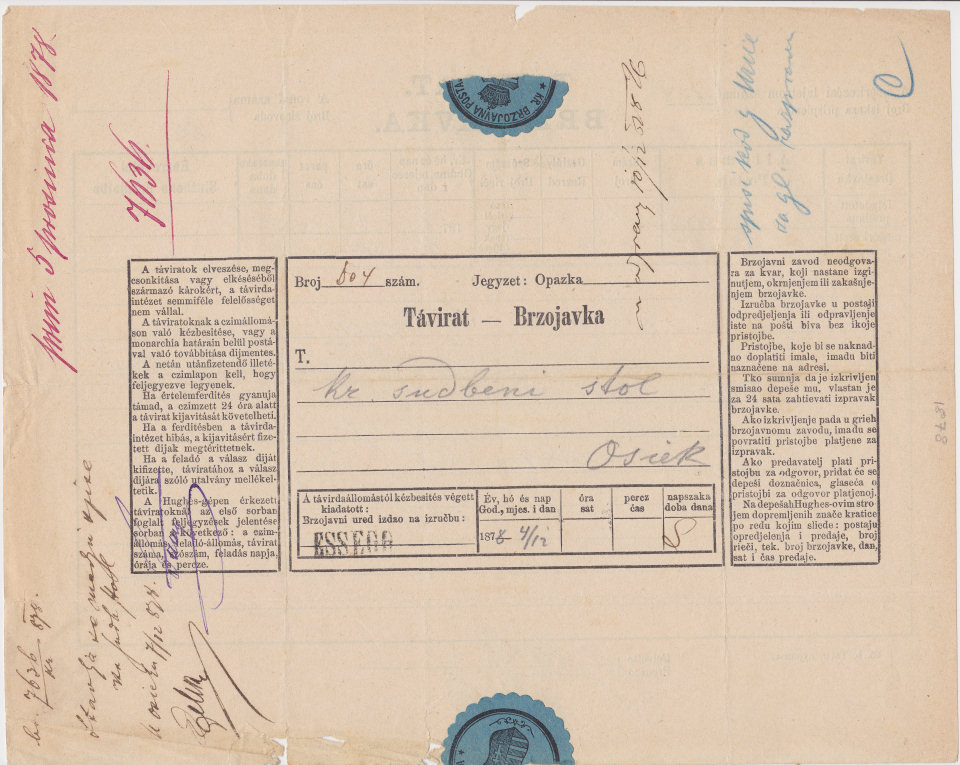 primlj. 5 prosinca 1878.
7636.
KR. BRZOJAVNA POSTAJA
10/12 878
C
A táviratok elveszése, meg-
csonkitása vagy elkéséséből
származó károkért, a távirda-
intézet semmiféle felelősséget
nem vállal.
A táviratoknak a czimállomá-
son való kézbesitése, vagy a
monarchia határain belül postá-
val való továbbitása díjmentes.
A netán utánfizetendő illeté-
kek a czimlapon kell, hogy
feljegyezve legyenek.
Ha értelemferdités gyanuja
támad, a czimzett 24 óra alatt
a távirat kijavitását követelheti.
Ha a ferditésben a távirda-
intézet hibás, a kijavitásért fize-
tett dijak megtérittetnek.
Ha a feladó a válasz díját
kifizette, táviratához a válasz
díjára szóló utalvány mellékel-
tetik.
A Hughes-gépen érkezett
táviratoknak az első sorban
foglalt feljegyzések jelentése
sorban a következő: a czim-
állomás, feladó-állomás, távirat
száma, szószám, feladás napja,
órája és percze.
Broj 804 szám. Jegyzet: Opazka
Távirat — Brzojavka
T.
kr sudbeni stol
Osiek
A távirdaállomástól kézbesités végett
kiadatott:
Brzojavni ured izdao na izručbu:
ESSEGG
Év, hó és nap
God., mjes. i dan
1878 4/12
óra
sat
perez
čas
napszaka
doba dana
S
Brzojavni zavod neodgova-
ra za kvar, koji nastane izgi-
nutjem, okrnjenjem ili zakašnje-
njem brzojavke.
Izručba brzojavke u postaji
odpredjeljenja ili odpravljenje
iste na pošti biva bez ikoje
pristojbe.
Pristojbe, koje bi se naknad-
no doplatiti imale, imadu biti
naznačene na adresi.
Tko sumnja da je izkrivljen
smisao depeše mu, vlastan je
za 24 sata zahtievati izpravak
brzojavke.
Ako izkrivljenje pada u grieh
brzojavnomu zavodu, imadu se
povratiti pristojbe platjene za
izpravak.
Ako predavatelj plati pri-
stojbu za odgovor, pridat će se
depeši doznačnica, glaseća o
pristojbi za odgovor platjenoj.
Na depešah Hughes-ovim stro-
jem dopremljenih znače kratice
po redu kojim sliede: postaju
opredjelenja i predaje, broj
rieči, tek. broj brzojavke, dan,
sat i čas predaje.
1878
br. 7636 878.
kr
Stavlja se medju spise
U Osieku 7/12 878